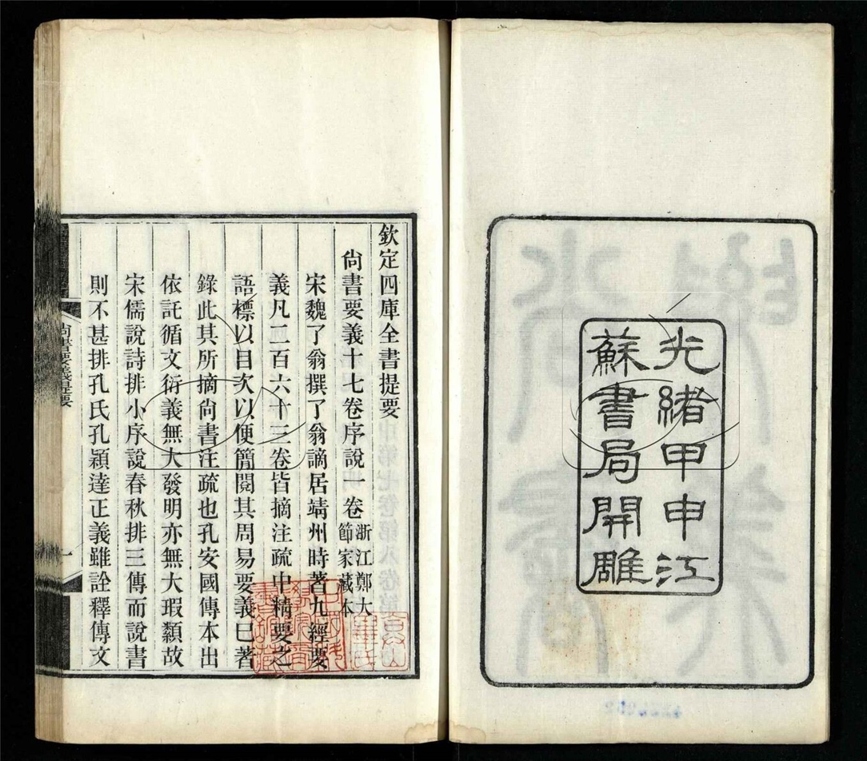 光緒甲申江
蘇書局開雕
欽定四庫全書提要
尚書要義十七卷序說一卷浙江鄭大節家藏本
宋魏了翁撰了翁謫居靖州時著九經要
義凡二百六十三卷皆摘注疏中精要之
語標以目次以便簡閱其周易要義已著
錄此其所摘尚書注疏也孔安國傳本出
依託循文衍義無大發明亦無大瑕纇故
宋儒說詩排小序說春秋排三傳而說書
則不甚排孔氏孔穎達正義雖詮釋傳文
尚書要義提要
一